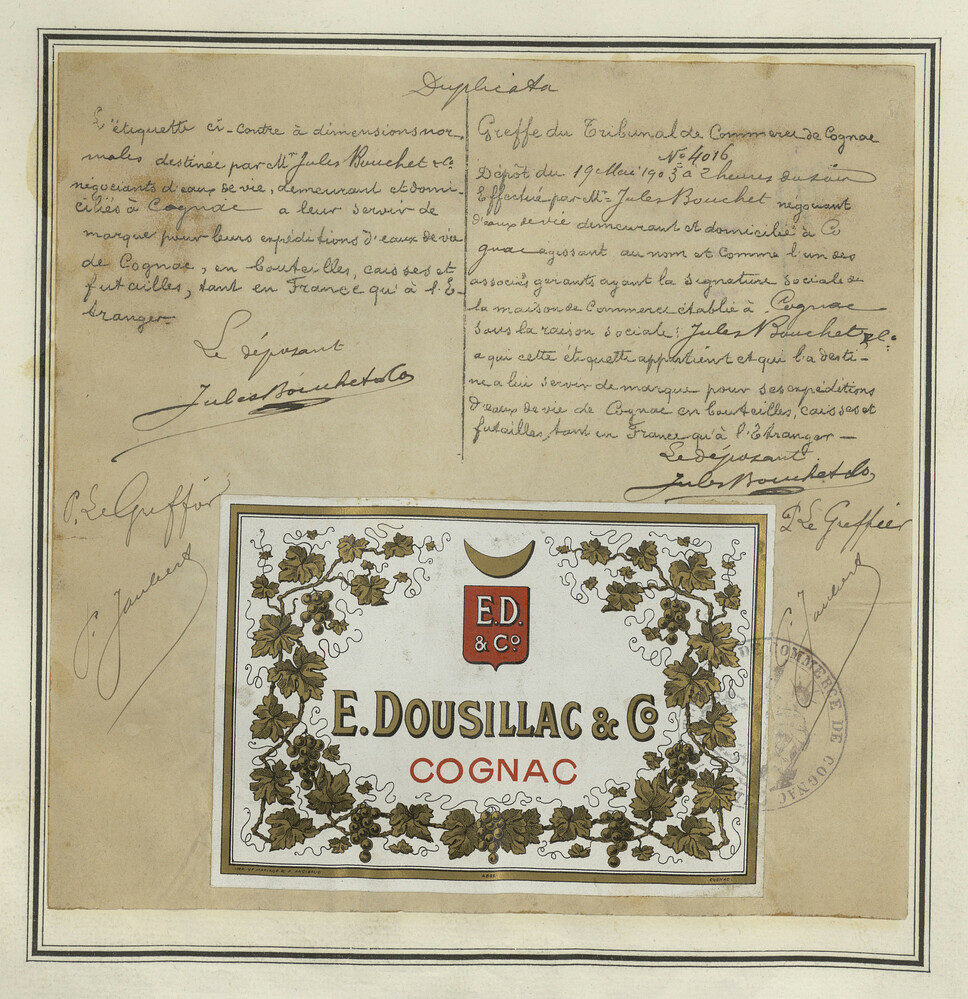 Duplicata
L'étiquette ci-contre à dimensions nor-
males destinée par Mr Jules Bouchet & Co
négociants d'eaux de vie, demeurant et domi-
ciliés à Cognac a leur servir de
marque pour leurs expéditions d'eaux de vie
de Cognac, en bouteilles, caisses et
futailles, tant en France qu'à l'E-
tranger
Le déposant
Jules Bouchet & Co
P. Le Greffier
P. Jaubert
Greffe du Tribunal de Commerce de Cognac
No 4016
Dépôt du 19 Mai 1903 à 2 heures du soir
Effectué par Mr Jules Bouchet négociant
d'eaux de vie demeurant et domicilié à Co
gnac agissant au nom et comme l'un des
associés gérants ayant la signature sociale de
la maison de Commerce établie à Cognac
sous la raison sociale: Jules Bouchet & Co
a qui cette étiquette appartient et qui l'a desti-
né a lui servir de marque pour ses expéditions
d'eaux de vie de Cognac en bouteilles, caisses et
futailles, tant en France qu'à l'Etranger —
Le déposant
Jules Bouchet & Co
P. Le Greffier
P. Jaubert
E.D.
& Co
E. DOUSILLAC & Co
COGNAC
DE COMMERCE DE COGNAC
COGNAC